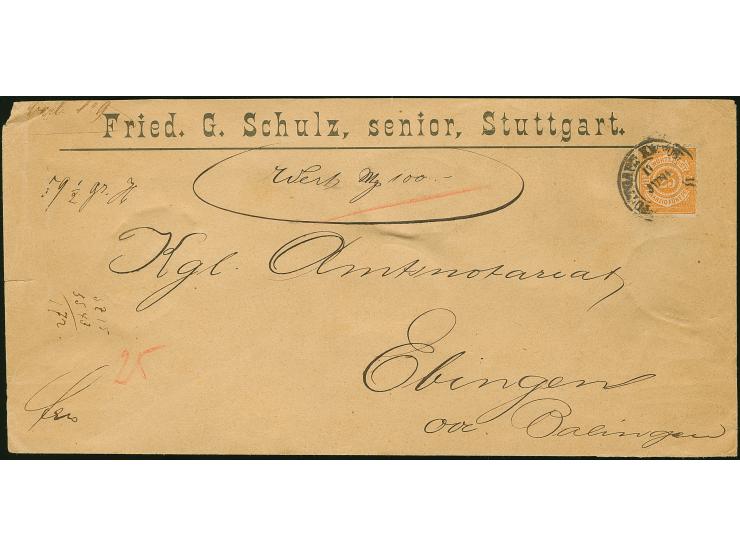 Fried. G. Schulz, senior, Stuttgart.
Wert M 100.-
79 1/2 gr. H
Kgl. Amtsnotariat,
Ebingen
OA. Balingen
25
172.
fro